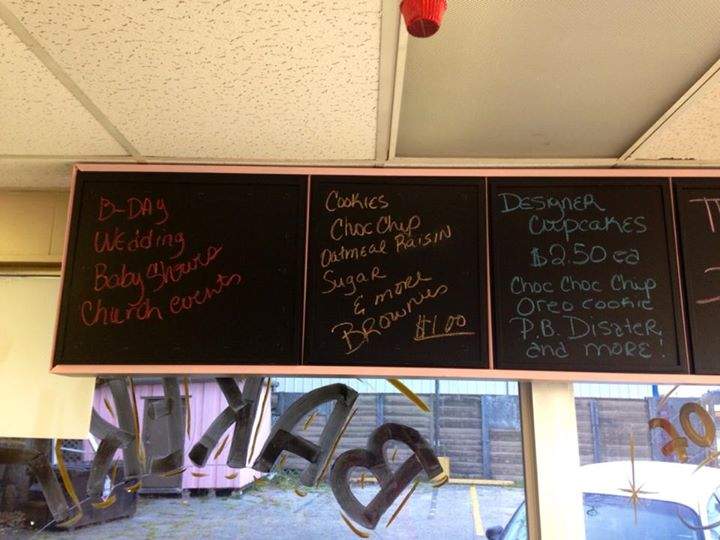 B-DAY
Wedding
Baby Showers
Church events
Cookies
Choc Chip
Oatmeal Raisin
Sugar
& more
Brownies
$1.00
Designer
Cupcakes
$2.50 ea
Choc Choc Chip
Oreo cookie
P.B. Disater
and more!
BAKERY